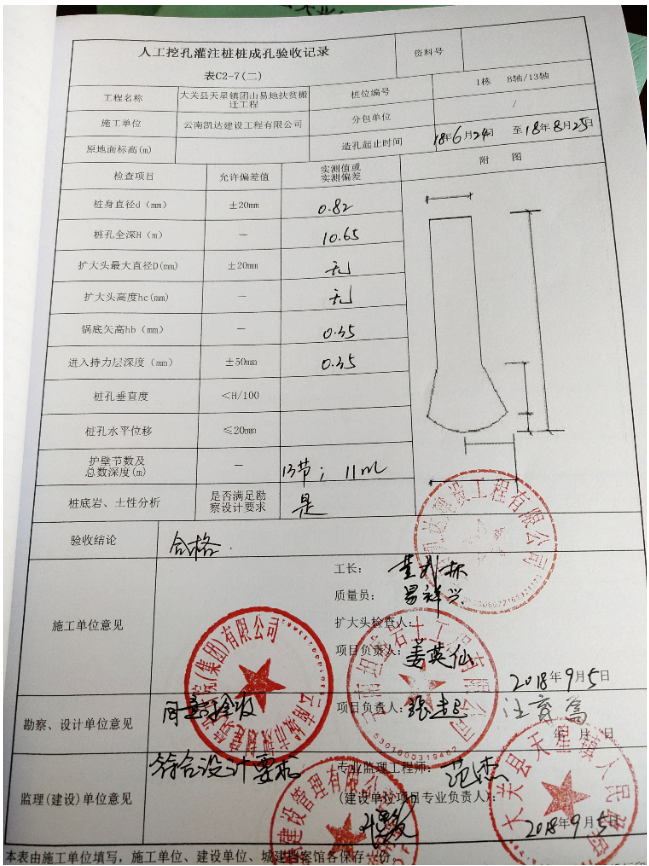 人工挖孔灌注桩桩成孔验收记录
表C2-7(二)
资料号
工程名称 大关县天星镇团山易地扶贫搬迁工程 桩位编号 1栋 8轴/13轴
施工单位 云南凯达建设工程有限公司 分包单位 /
原地面标高(m) 造孔起止时间 18年6月24日 至18年8月25日
检查项目 允许偏差值 实测值或实测偏差 附 图
桩身直径d(mm) ±20mm 0.82
桩孔全深H(m) — 10.65
扩大头最大直径D(mm) ±20mm 无
扩大头高度hc(mm) — 无
锅底矢高hb(mm) — 0.35
进入持力层深度(mm) ±50mm 0.35
桩孔垂直度 <H/100
桩孔水平位移 ≤20mm
护壁节数及总数深度(m) — 13节; 11m
桩底岩、土性分析 是否满足勘察设计要求 是
验收结论 合格.
施工单位意见
工长:
质量员: 易祥兴
扩大头检查人:
项目负责人: 姜英仙
2018年9月5日
勘察、设计单位意见 同意验收 项目负责人:
年 月 日
监理(建设)单位意见 符合设计要求 专业监理工程师: 范杰
(建设单位项目专业负责人):
2018年9月5日
本表由施工单位填写,施工单位、建设单位、城建档案馆各保存一份。